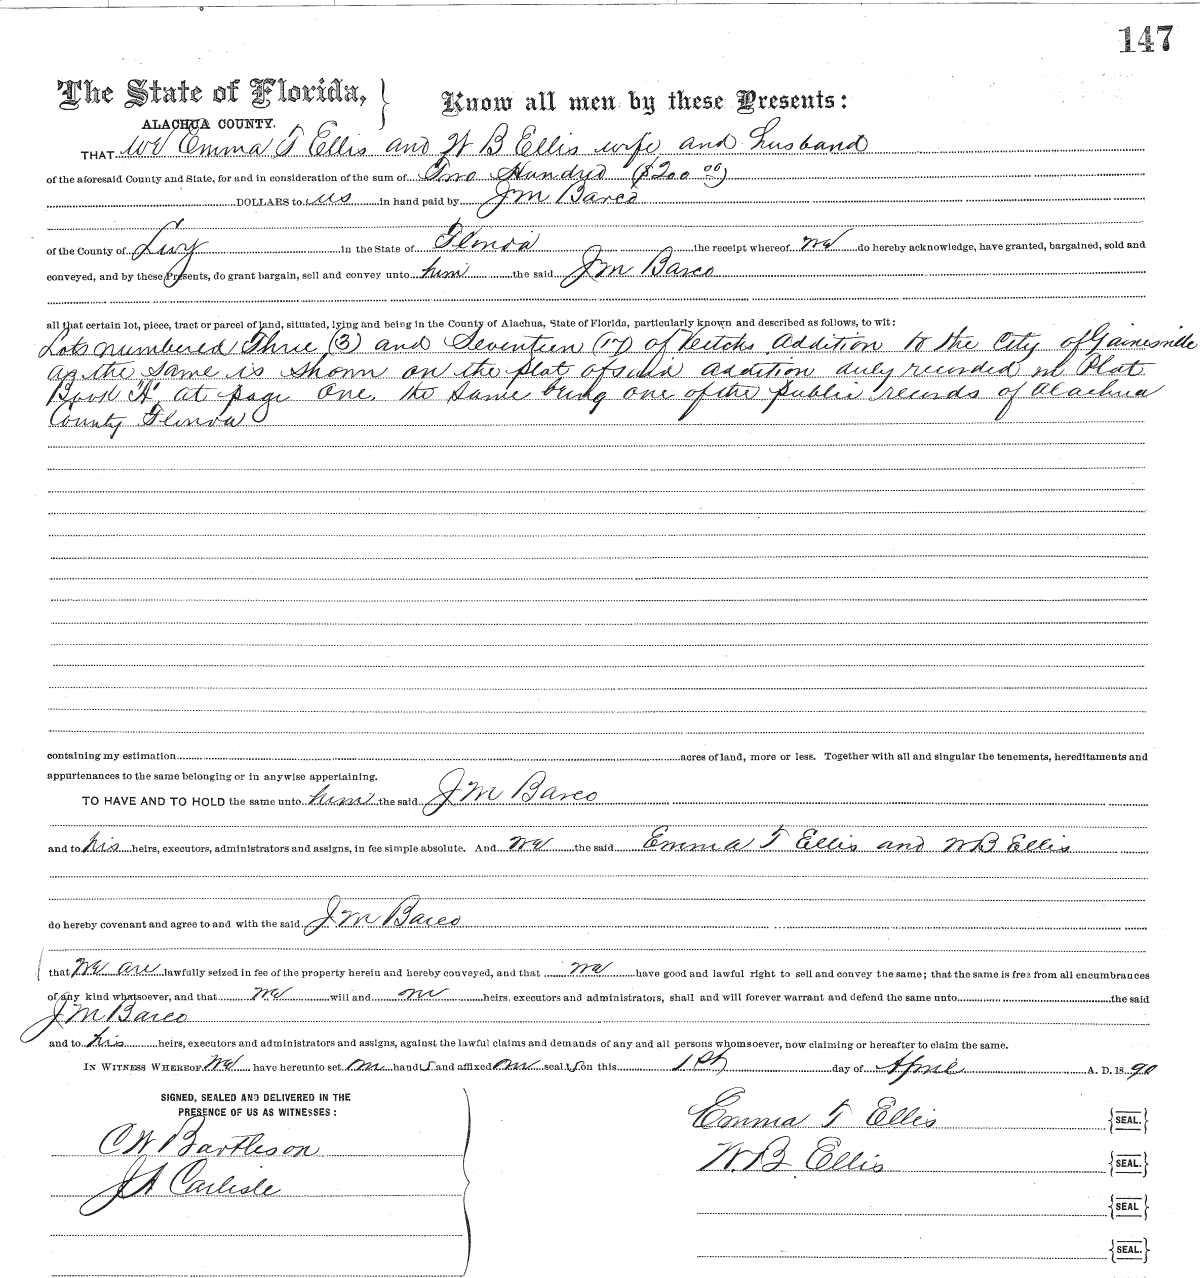 147
The State of Florida, } Know all men by these Presents:
ALACHUA COUNTY.
THAT We Emma T Ellis and W B Ellis wife and husband
of the aforesaid County and State, for and in consideration of the sum of Two Hundred ($200 00)
DOLLARS to us in hand paid by J M Barco
of the County of Levy in the State of Florida the receipt whereof we do hereby acknowledge, have granted, bargained, sold and
conveyed, and by these Presents, do grant bargain, sell and convey unto him the said J M Barco
all that certain lot, piece, tract or parcel of land, situated, lying and being in the County of Alachua, State of Florida, particularly known and described as follows, to wit:
Lots numbered Three (3) and Seventeen (17) of Addition to the City of Gainesville
as the same is shown on the plat of said addition duly recorded in Plat
Book "A" at page One. the same being one of the public records of Alachua
County Florida
containing my estimation acres of land, more or less. Together with all and singular the tenements, hereditaments and
appurtenances to the same belonging or in anywise appertaining.
TO HAVE AND TO HOLD the same unto him the said J M Barco
and to his heirs, executors, administrators and assigns, in fee simple absolute. And we the said Emma T Ellis and W B Ellis
do hereby covenant and agree to and with the said J M Barco
that we are lawfully seized in fee of the property herein and hereby conveyed, and that we have good and lawful right to sell and convey the same; that the same is free from all encumbrances
of any kind whatsoever, and that we will and our heirs, executors and administrators, shall and will forever warrant and defend the same unto the said
J M Barco
and to his heirs, executors and administrators and assigns, against the lawful claims and demands of any and all persons whomsoever, now claiming or hereafter to claim the same.
IN WITNESS WHEREOF we have hereunto set our hands and affixed our seals on this 1st day of April A. D. 1890
SIGNED, SEALED AND DELIVERED IN THE
PRESENCE OF US AS WITNESSES:
Emma T Ellis {SEAL.}
C W Bartleson
W. B Ellis {SEAL.}
J A Carlisle
{SEAL}
{SEAL.}